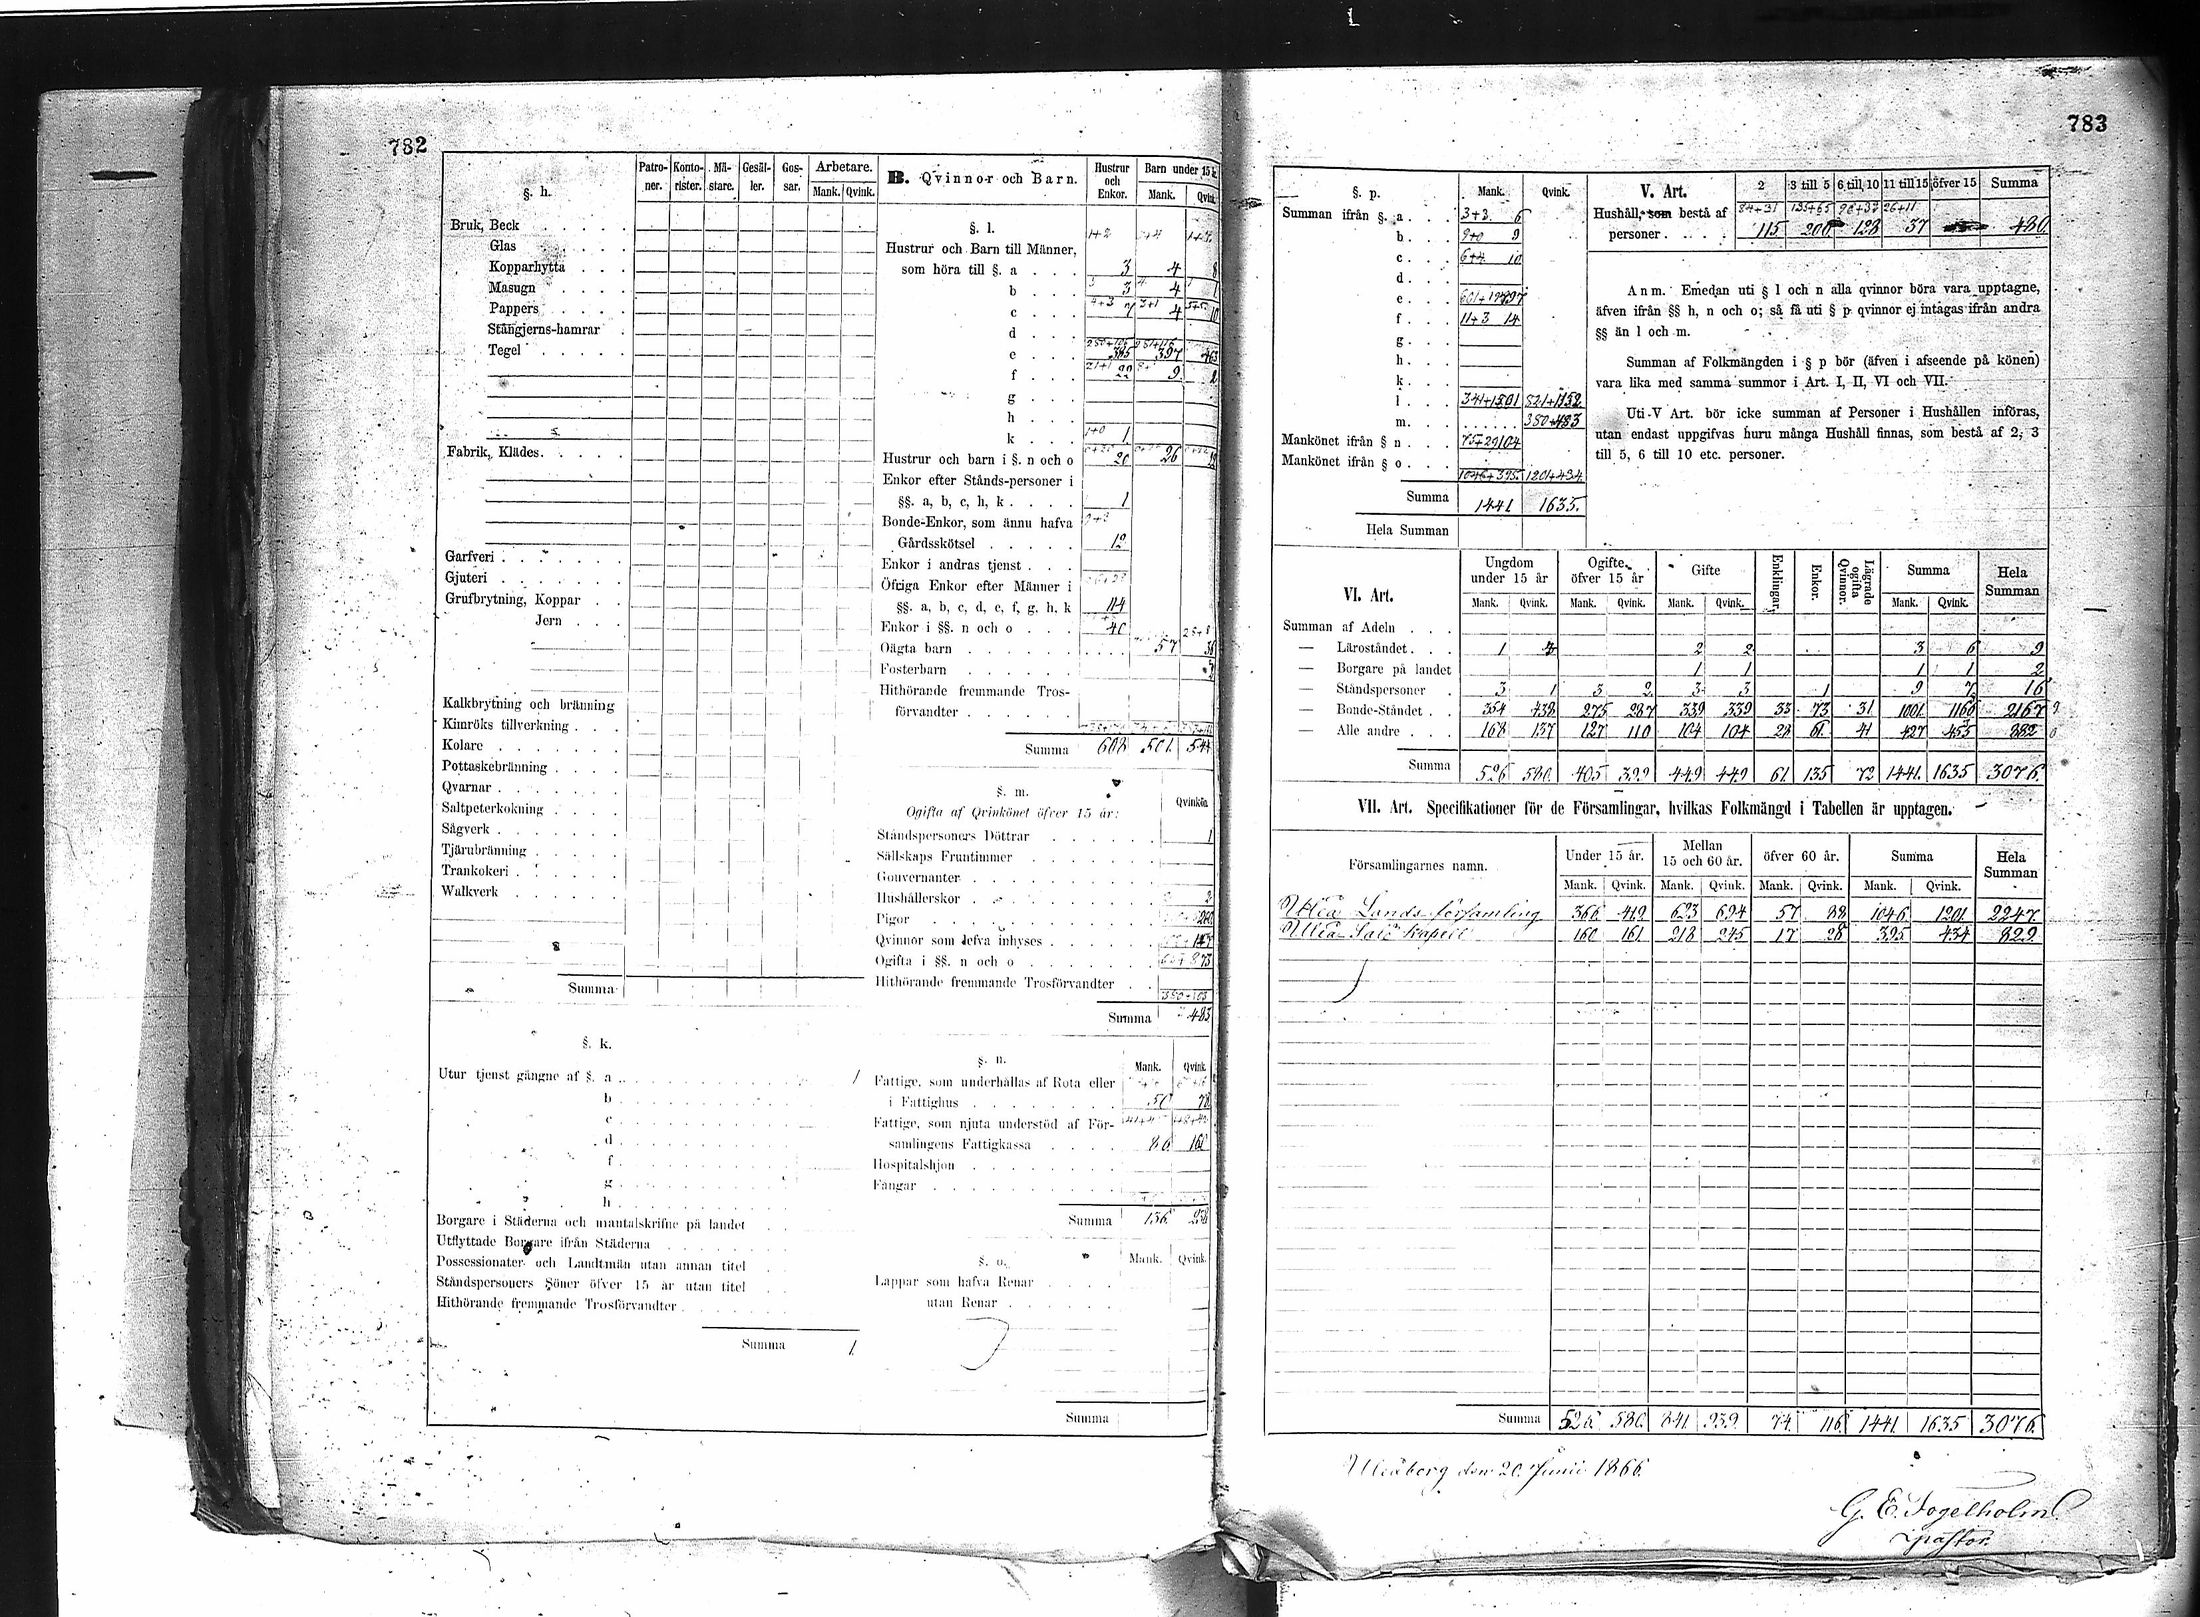 782
§. h.
Patro-ner. Konto-rister. Mä-stare. Gesäl-ler. Gos-sar. Arbetare. Mank. Qvink.
Bruk, Beck
Glas
Kopparhytta
Masugn
Pappers
Stångjerns-hamrar
Tegel
Fabrik, Klädes
Garfveri
Gjuteri
Grufbrytning, Koppar
Jern
Kalkbrytning och bränning
Kimröks tillverkning
Kolare
Pottaskebränning
Qvarnar
Saltpeterkokning
Sågverk
Tjärubränning
Trankokeri
Walkverk
Summa
§. k.
Utur tjenst gångne af §. a 1
b
c
d
f
g
h
Borgare i Städerna och mantalskrifne på landet
Utflyttade Borgare ifrån Städerna
Possessionater och Landtmän utan annan titel
Ståndspersoners Söner öfver 15 år utan titel
Hithörande fremmande Trosförvandter
Summa 1.
B. Qvinnor och Barn. Hustrur och Enkor. Barn under 15 Mank.
§. l.
Hustrur och Barn till Männer, 1+2
som höra till §. a 3 4 8
b 3 4 1
c 7 4 10
d
e 397 463
f 22 9
g
h
k 1+0 1
Hustrur och barn i §. n och o 20 26
Enkor efter Stånds-personer i
§§. a, b, c, h, k 1
Bonde-Enkor, som ännu hafva
Gårdsskötsel 12
Enkor i andras tjenst
Öfriga Enkor efter Männer i
§§. a, b, c, d, e, f, g, h, k
Enkor i §§. n och o 40
Oägta barn 57
Fosterbarn
Hithörande fremmande Tros-
förvandter
Summa 608 501 544
§. m.
Ogifta af Qvinkönet öfver 15 år: Qvinkön
Ståndspersoners Döttrar 1
Sällskaps Fruntimmer
Gouvernanter
Hushållerskor 2
Pigor
Qvinnor som lefva inhyses
Ogifta i §§. n och o
Hithörande fremmande Trosförvandter
Summa 483
§. n.
Mank. Qvink.
Fattige, som underhållas af Rota eller
i Fattighus 50 78
Fattige, som njuta understöd af För-
samlingens Fattigkassa 86 160
Hospitalshjon
Fångar
Summa 136 238
§. o. Mank. Qvink.
Lappar som hafva Renar
utan Renar
Summa
783
§. p. Mank. Qvink.
Summan ifrån §. a 3+3 6
b 9+0 9
c 6+4 10
d
e
f 11+3 14
g
h
k
l
m
Mankönet ifrån § n 75+29 104
Mankönet ifrån § o
1046+395 1201+434
Summa 1441 1635.
Hela Summan
V. Art. 2 3 till 5 6 till 10 11 till 15 öfver 15 Summa
Hushåll, som bestå af 84+31 135+65 26+11
personer 115 200 128 37 480
Anm. Emedan uti § l och n alla qvinnor böra vara upptagne,
äfven ifrån §§ h, n och o; så få uti § p qvinnor ej intagas ifrån andra
§§ än l och m.
Summan af Folkmängden i § p bör (äfven i afseende på könen)
vara lika med samma summor i Art. I, II, VI och VII.
Uti V Art. bör icke summan af Personer i Hushållen införas,
utan endast uppgifvas huru många Hushåll finnas, som bestå af 2, 3
till 5, 6 till 10 etc. personer.
VI. Art. Ungdom under 15 år Ogifte öfver 15 år Gifte Enklingar. Enkor. Lägrade ogifta Qvinnor. Summa Hela Summan
Mank. Qvink. Mank. Qvink. Mank. Qvink. Mank. Qvink.
Summan af Adeln
— Läroståndet 1 2 2 3 6 9
— Borgare på landet 1 1 1 1 2
— Ståndspersoner 3 1 3 2 3 3 1 9 7 16
— Bonde-Ståndet 354 438 275 287 339 339 33 73 31 1001 2167
— Alle andre 168 137 127 110 104 104 28 61 41 427 882
Summa 526 580 405 399 449 449 61 135 72 1441 1635 3076
VII. Art. Specifikationer för de Församlingar, hvilkas Folkmängd i Tabellen är upptagen.
Församlingarnes namn. Under 15 år. Mellan 15 och 60 år. öfver 60 år. Summa Hela Summan
Mank. Qvink. Mank. Qvink. Mank. Qvink. Mank. Qvink.
Uleå Lands församling 366 419 623 694 57 88 1046 1201 2247
Uleå Salo kapell 160 161 218 245 17 28 395 434 829
Summa 526 580 841 939 74 116 1441 1635 3076.
Uleåborg den 20 Junii 1866.
G. E. Fogelholm